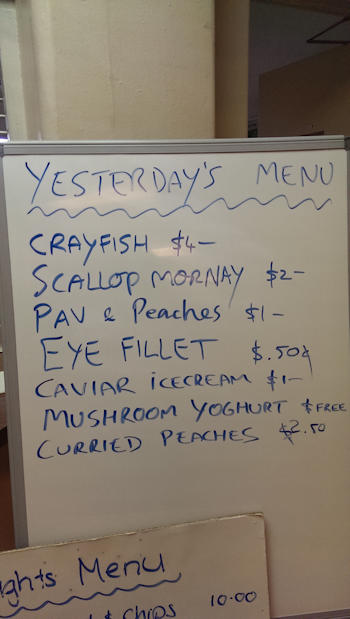 YESTERDAY'S MENU
CRAYFISH $4-
SCALLOP MORNAY $2-
PAV & Peaches $1-
EYE FILLET $.50¢
CAVIAR ICECREAM $1-
MUSHROOM YOGHURT $FREE
CURRIED PEACHES $2.50
ghts Menu
& Chips 10.00